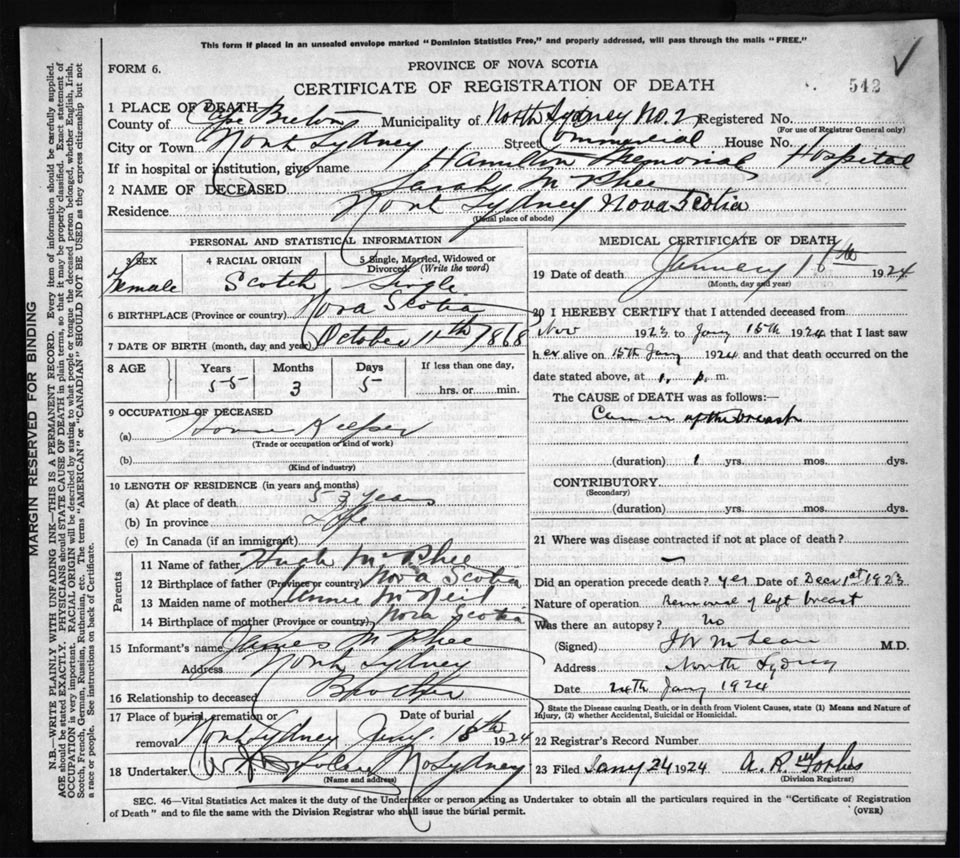 This form if placed in an unsealed envelope marked "Dominion Statistics Free," and properly addressed, will pass through the mails "FREE."
FORM 6.
PROVINCE OF NOVA SCOTIA
CERTIFICATE OF REGISTRATION OF DEATH
542
1 PLACE OF DEATH
County of Cape Breton Municipality of North Sydney No. 2 Registered No.
(For use of Registrar General only)
City or Town North Sydney Street Commercial House No.
If in hospital or institution, give name Hamilton Memorial Hospital
2 NAME OF DECEASED Sarah McPhee
Residence North Sydney Nova Scotia
(Usual place of abode)
PERSONAL AND STATISTICAL INFORMATION
3 SEX Female
4 RACIAL ORIGIN Scotch
5 Single, Married, Widowed or Divorced (Write the word) Single
6 BIRTHPLACE (Province or country) Nova Scotia
7 DATE OF BIRTH (month, day and year) October 11th 1868
8 AGE Years Months Days If less than one day,
55 3 5 hrs. or min.
9 OCCUPATION OF DECEASED
(a) House Keeper
(Trade or occupation or kind of work)
(b)
(Kind of industry)
10 LENGTH OF RESIDENCE (in years and months)
(a) At place of death 53 years
(b) In province Life
(c) In Canada (if an immigrant)
Parents
11 Name of father Hugh McPhee
12 Birthplace of father (Province or country) Nova Scotia
13 Maiden name of mother Annie McNeil
14 Birthplace of mother (Province or country) Nova Scotia
15 Informant's name James McPhee
Address North Sydney
16 Relationship to deceased Brother
17 Place of burial, cremation or removal North Sydney
Date of burial Jany. 18th 1924
18 Undertaker No Sydney
(Name and address)
MEDICAL CERTIFICATE OF DEATH
19 Date of death January 16th 1924
(Month, day and year)
20 I HEREBY CERTIFY that I attended deceased from
Nov 1923 to Jany 15th 1924 that I last saw
h er alive on 15th Jany 1924 and that death occurred on
date stated above, at 1. p. m.
The CAUSE of DEATH was as follows:—
Cancer of the breast
(duration) 1 yrs. mos. dys.
CONTRIBUTORY
(Secondary)
(duration) yrs. mos. dys.
21 Where was disease contracted if not at place of death?
—
Did an operation precede death? yes Date of Decr 1st 1923
Nature of operation Removal of left breast
Was there an autopsy? No
(Signed) McLean M.D.
Address North Sydney
Date 24th Jany 1924
State the Disease causing Death, or in death from Violent Causes, state (1) Means and Nature of
Injury, (2) whether Accidental, Suicidal or Homicidal.
22 Registrar's Record Number
23 Filed Jany 24 1924 A. R. Forbes
(Division Registrar)
SEC. 46—Vital Statistics Act makes it the duty of the Undertaker or person acting as Undertaker to obtain all the particulars required in the "Certificate of Registration
of Death" and to file the same with the Division Registrar who shall issue the burial permit.
(OVER)
MARGIN RESERVED FOR BINDING
N.B.—WRITE PLAINLY WITH UNFADING INK—THIS IS A PERMANENT RECORD. Every item of information should be carefully supplied.
AGE should be stated EXACTLY. PHYSICIANS should STATE CAUSE OF DEATH in plain terms, so that it may be properly classified. Exact statement of
OCCUPATION is very important. RACIAL ORIGIN will be described by stating to what people or tongue the deceased person belonged, whether English, Irish,
Scotch, French, German, Russian, Ruthenian, etc. The terms "AMERICAN" or "CANADIAN" SHOULD NOT BE USED as they express citizenship but not
a race or people. See instructions on back of Certificate.